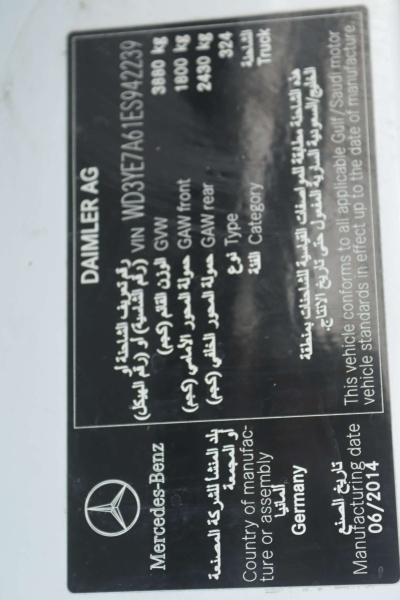 Mercedes-Benz
بلد المنشأ للشركة المصنعة
أو المجمعة
Country of manufac-
ture or assembly
المانيا
Germany
تاريخ الصنع
Manufacturing date
06/2014
DAIMLER AG
رقم تعريف الشاحنة أو
(رقم الشاسية) أو (رقم الهيكل) VIN WD3YE7A61ES942239
الوزن القائم (كجم) GVW 3880 kg
حمولة المحور الأمامي (كجم) GAW front 1800 kg
حمولة المحور الخلفي (كجم) GAW rear 2430 kg
نوع Type 324
الفئة Category الشاحنة
Truck
هذه الشاحنة مطابقة للمواصفات القياسية للشاحنات بمنطقة
الخليج/السعودية السارية المفعول حتى تاريخ الانتاج.
This vehicle conforms to all applicable Gulf/Saudi motor
vehicle standards in effect up to the date of manufacture.